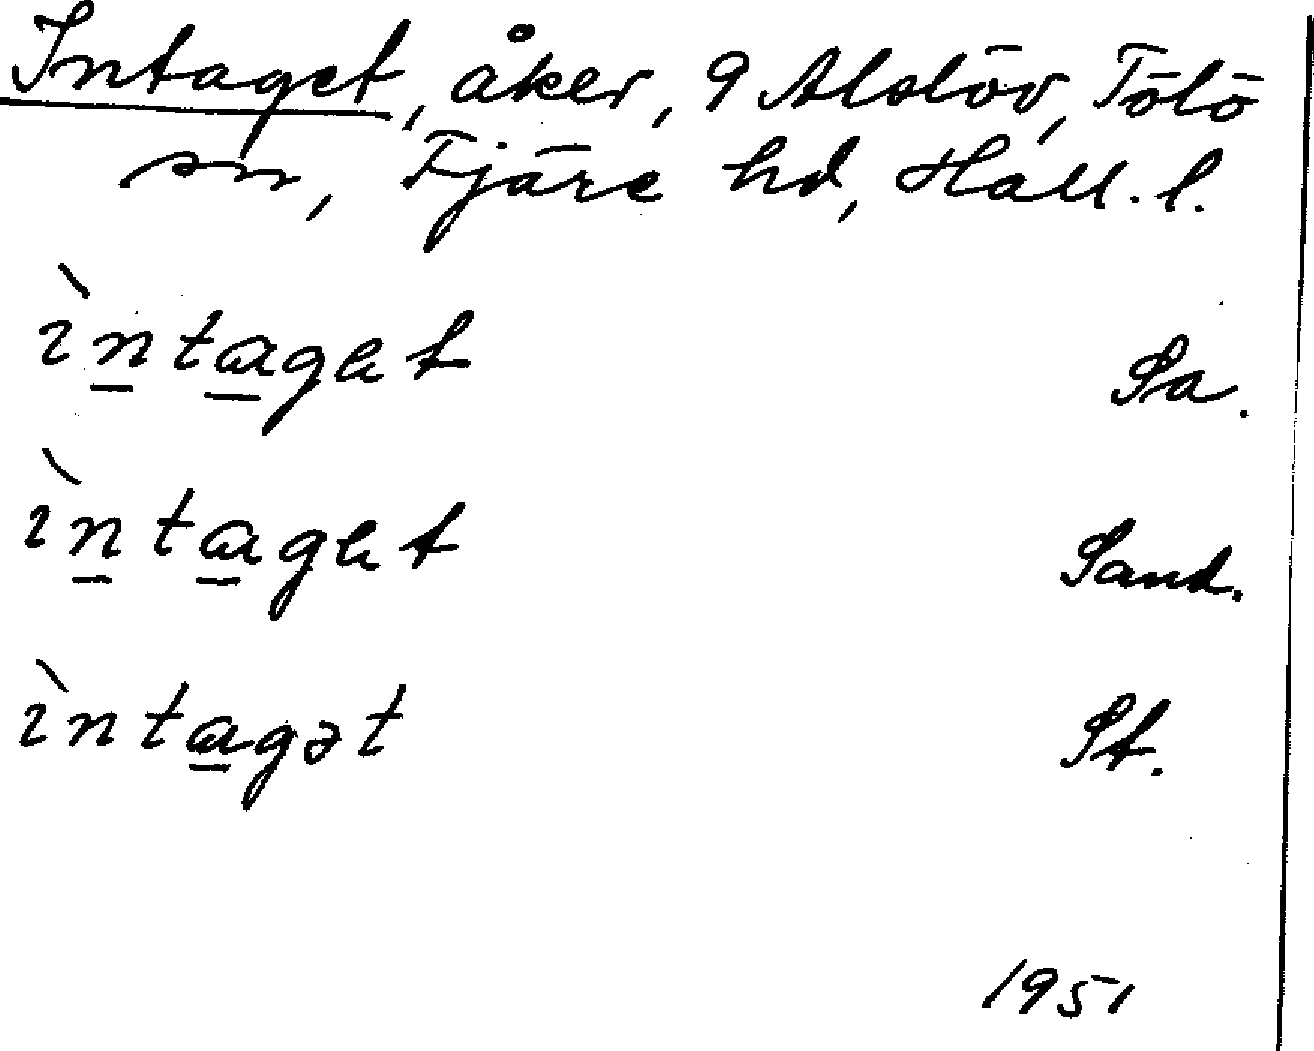 Intaget, åker, 9 Alslöv, Tölö
sn, Fjäre hd, Hall. l.
ìntaget Sa.
ìntaget Sand.
ìntagət St.
1951